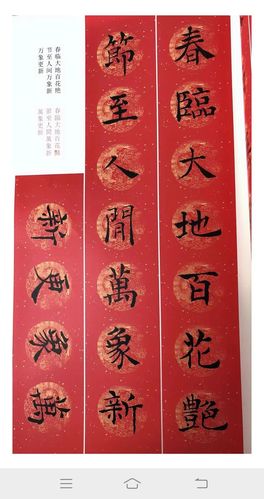 春臨大地百花艷
節至人間萬象新
萬象更新
春临大地百花艳
节至人间万象新
万象更新
春臨大地百花豔
節至人間萬象新
萬象更新